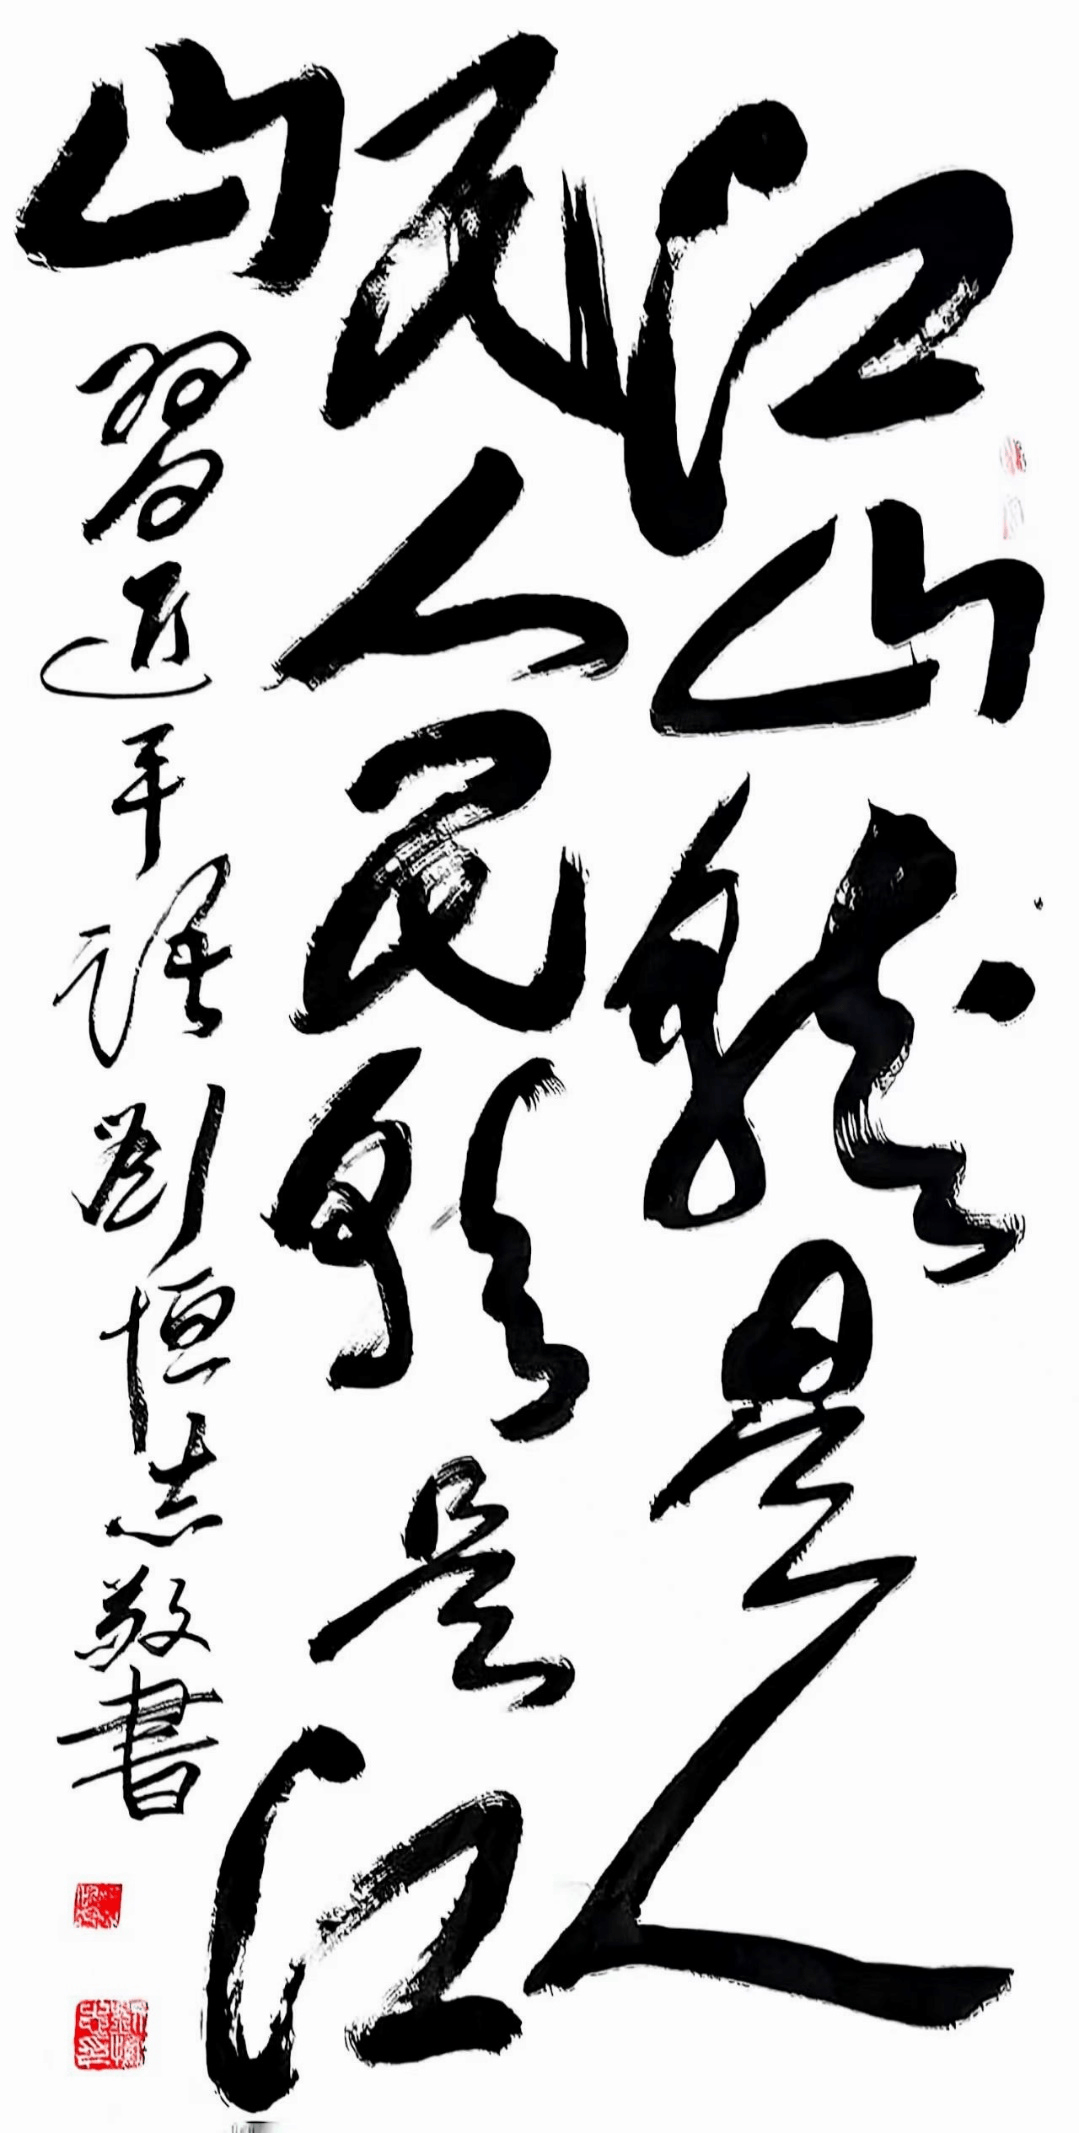 江山就是人
民人民就是江
山習近平語劉恒志敬書